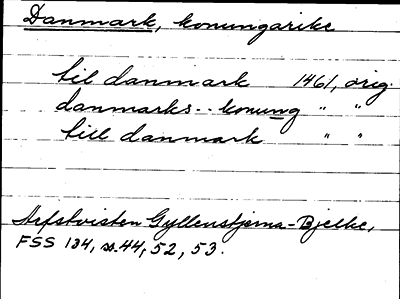 Danmark, konungarike
til danmark 1461, orig.
danmarks - - konung " "
till danmark " "
Arfstvisten Gyllenstjerna - Bjelke,
FSS 134, s. 44, 52, 53.